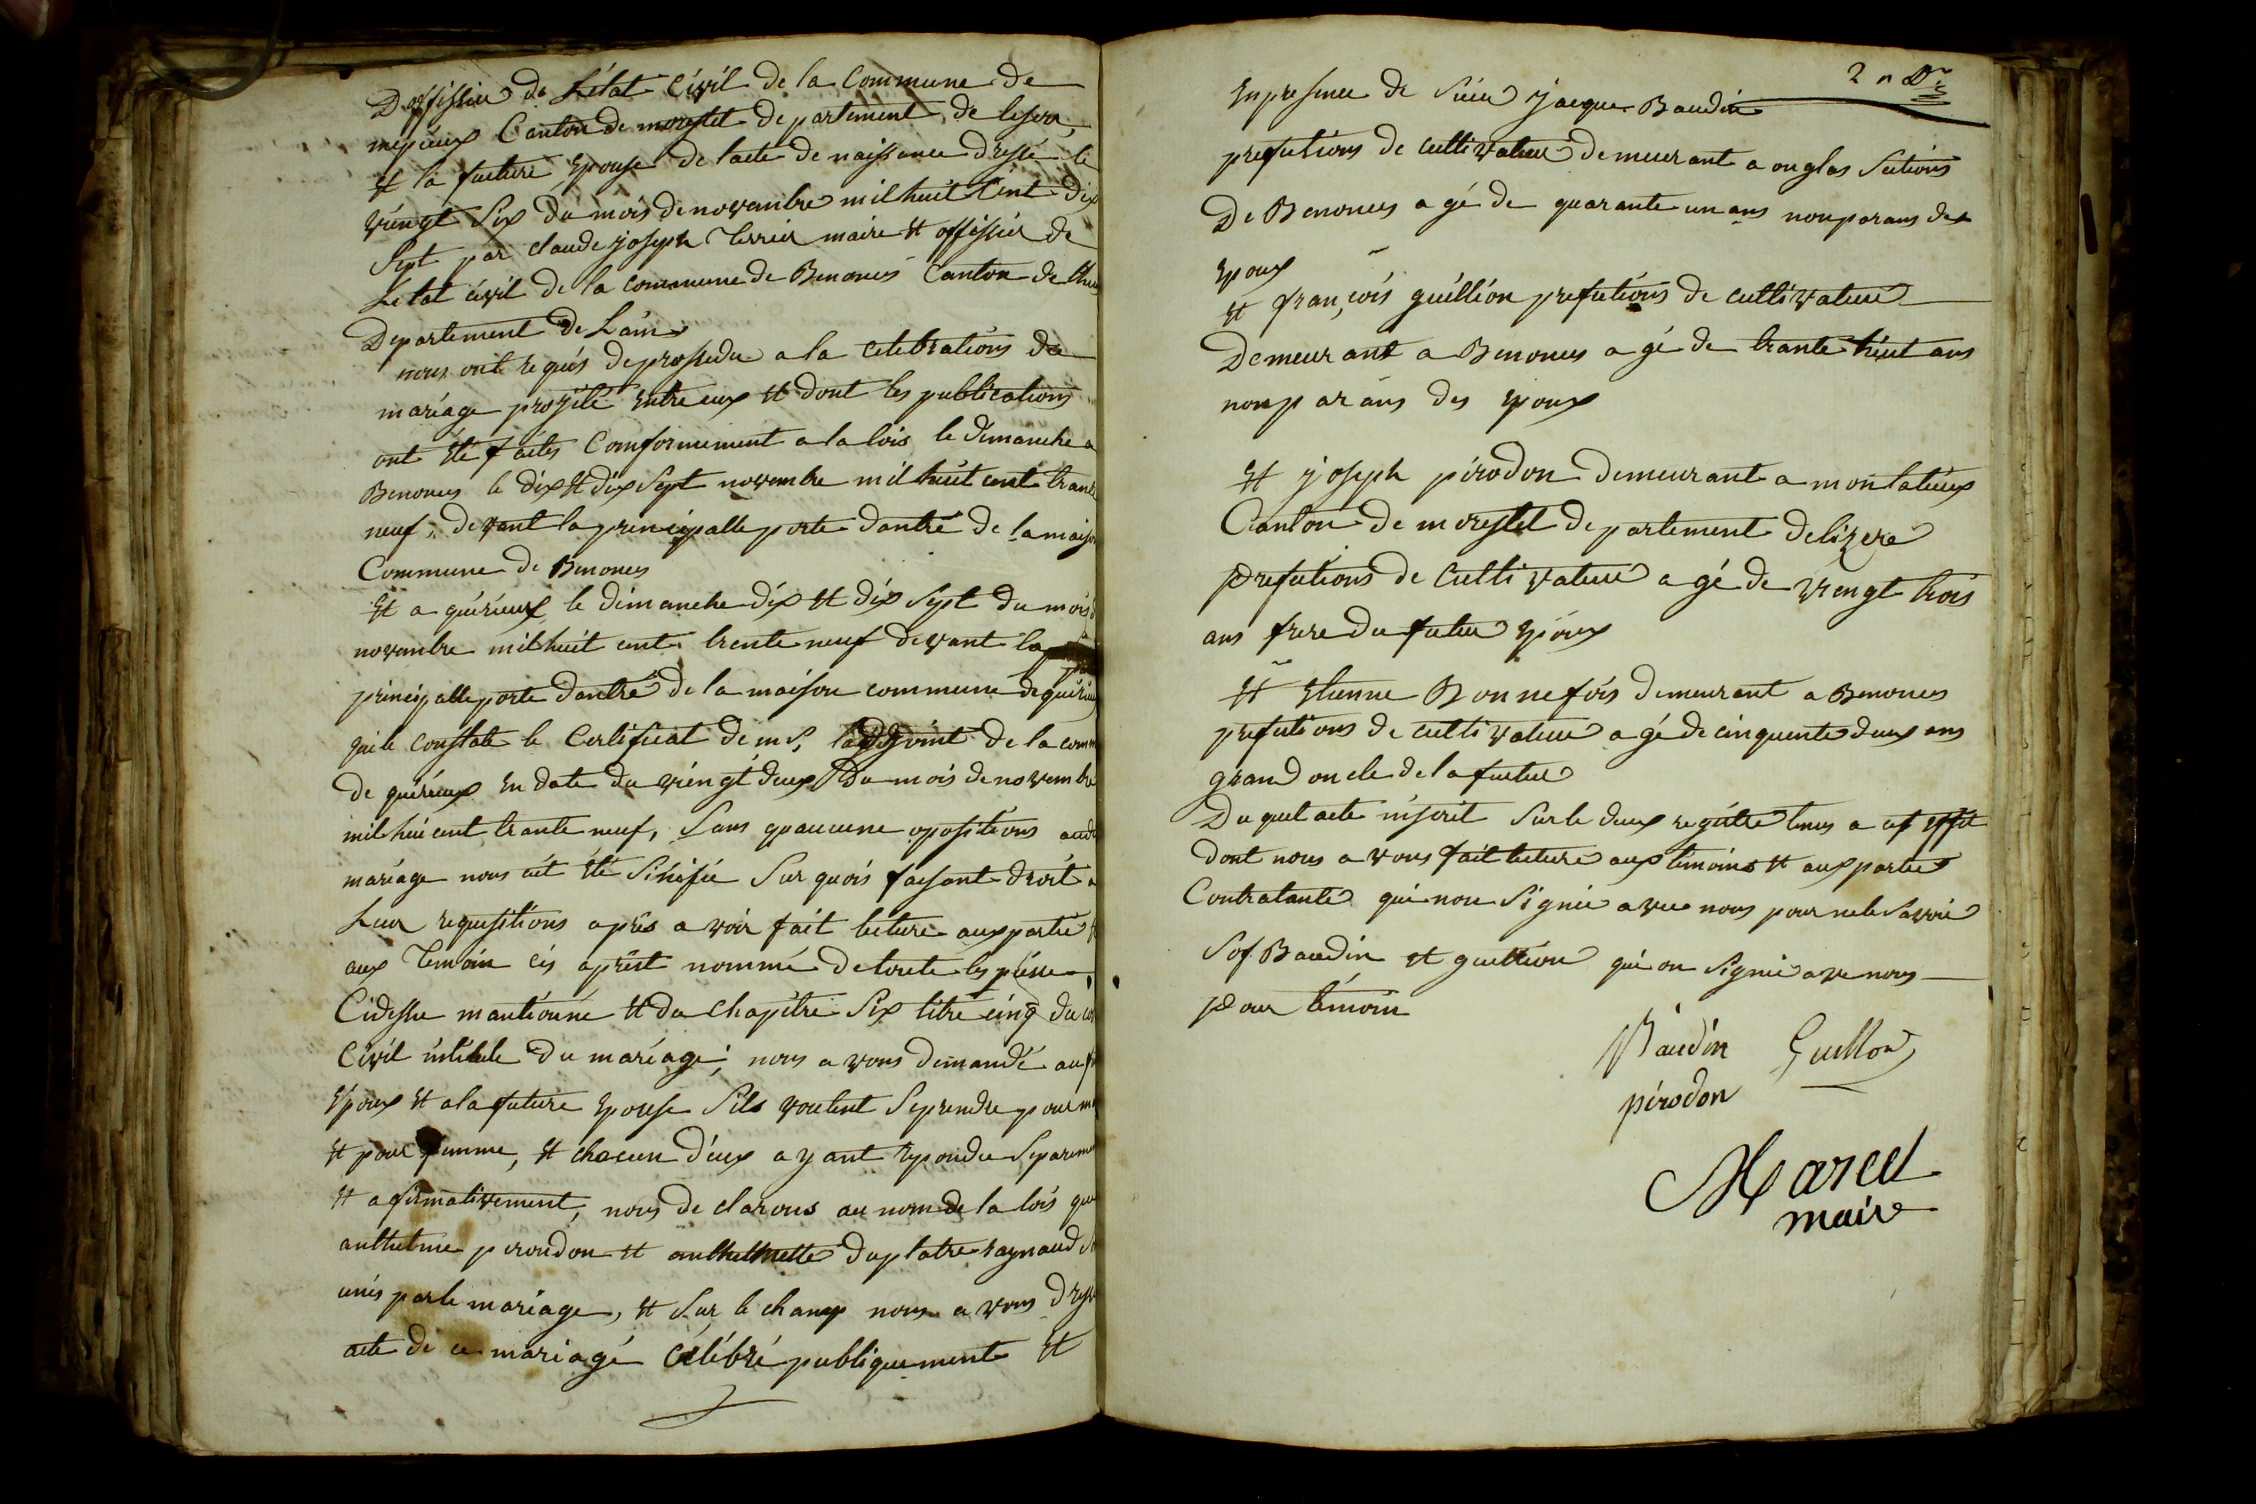 Doffissier de Létat Civil de la Commune de
mepieux Canton de morestel departement de lesera,
et la future Epouse de lacte de naissance dressé le
viengt Six du mois de novembre mil huit Cent dix
Sept par claude joseph maire et offissier de
Létat civil de la commune de Benonces Canton de
Departement de Lain
nous ont requis de prosseder a la celebrations de
mariage projété Entre eux et dont les publications
ont été faites Comformement a la lois le dimanche a
Benonces le dix et dix Sept novembre mil huit cent trante
neuf, devant la principalle porte dantré de la maison
Commune de Benonces
Et a quirieux le dimanche dix et dix Sept du mois
novembre mil huit cent trente neuf devant la
principalle porte dantré de la maison commune de quirieu
qui le constate le Certificat de mr ladjoint de la comm
de quirieux En date du viengt deux du mois de novembre
mil hui cent trante neuf, Sans qu aucune opositions aud
mariage nous ait été Sinifié Sur quois faisant droit a
Leur requisitions après a voir fait lecture aux partie et
aux Temoin cis aprest nommé de toute les piesse
Cidessu mantionné et du chapitre Six titre cinq du co
Civil intitule du mariage; nous a vons demandé au f
Epoux et a la future Epouse Sils veulent Se prendre pour m
et pour femme, et chacun d'eux a y ant repondu Separeme
et afirmativement, nous de clarons au nom de la lois que
anthelme perondon et anthelmette duplatre raynaud
unis par le mariage, et Sur le champ nous a vons dress
acte de ce mariagé Célébré publiquement et
2 n Dr
En presence de Sieur jacque Baudin
profutions de cultivateur demeurant a onglas Sutions
De Benonces a gé de quarante un ans non parans des
Epoux
et françois guillion profutions de cultivateur
Demeurant a Benonces a gé de trante huit ans
non parans des Epoux
Et joseph pirodon demeurant a montalieux
Canton de morestel departement de lizere
profutions de Cultivateur a gé de viengt trois
ans frere du futur Epoux
Et Etienne Bonnefois demeurant a Benonces
profutions de cultivateur a gé de cinquante deux ans
grand oncle de la future
Du quel acte inscrit Sur le deux régitre tenus a cet effet
dont nous a vons fait lecture aux temoins et aux parties
Contratante qui non Signié avec nous pour ne le Savoir
Sof Baudin et guillion qui on Signié ave nous
pour témoin
Baudin Guillon
pirodon
Marcel
maire